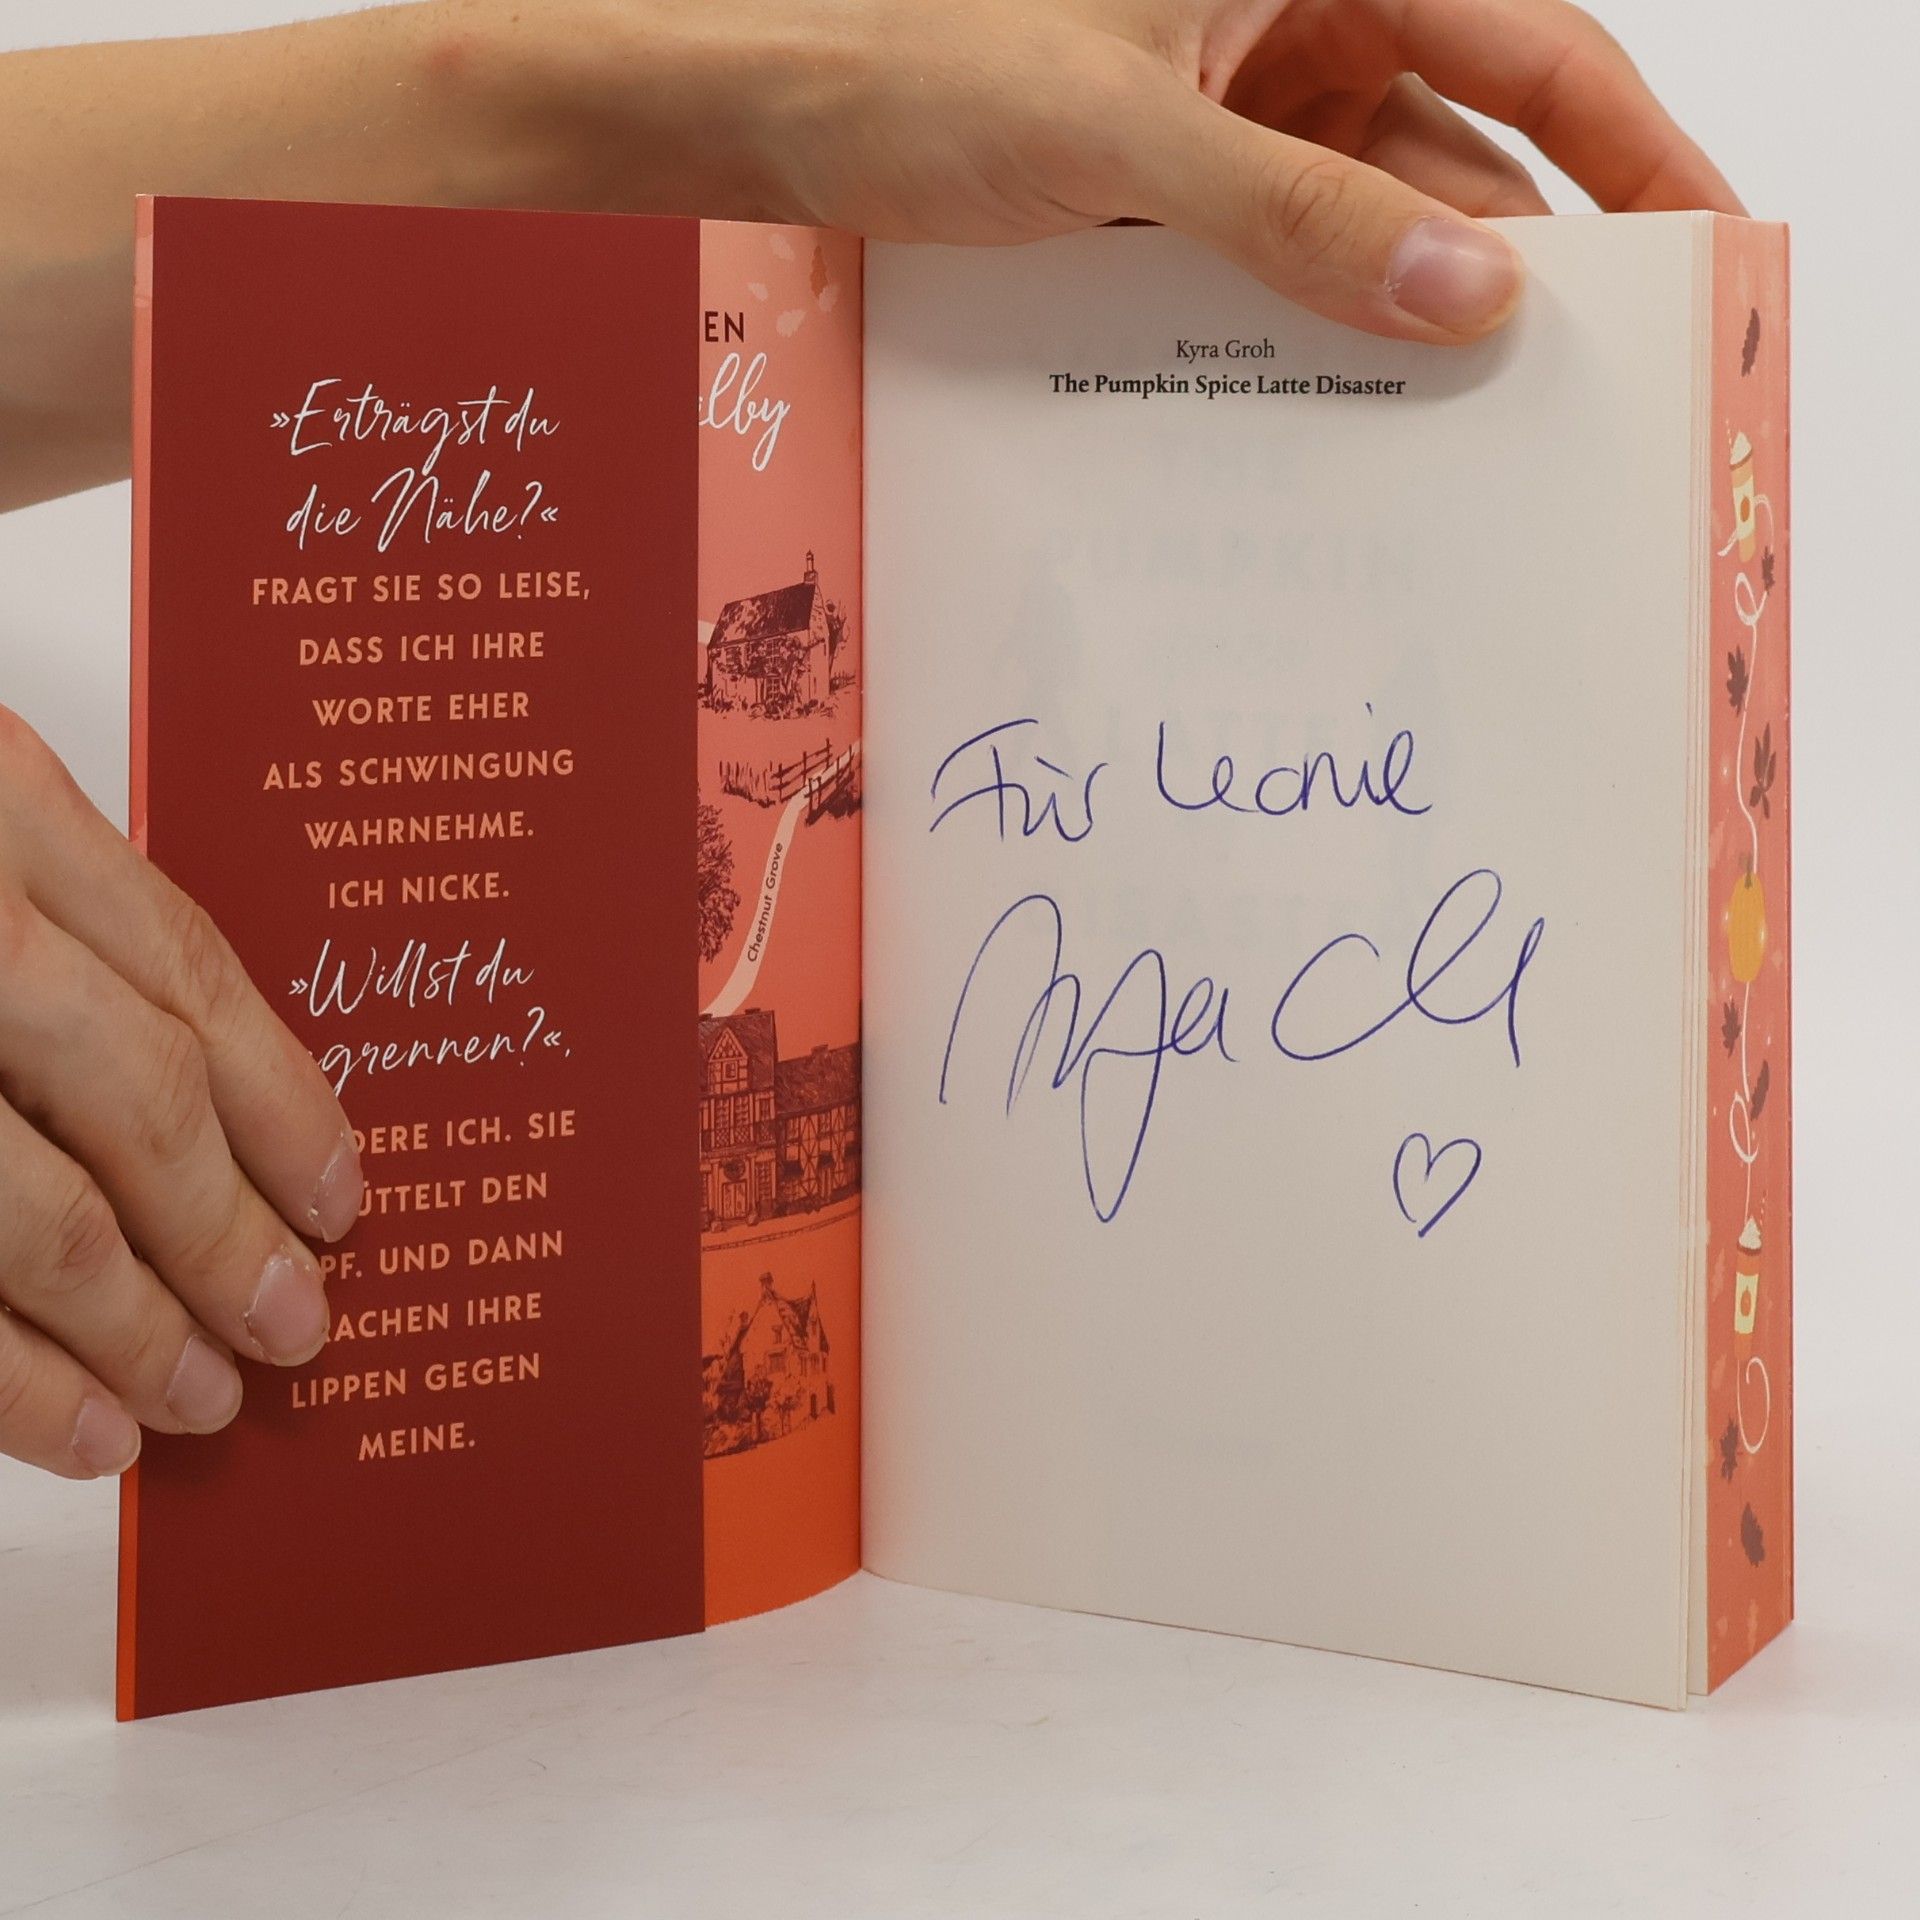 »Erträgst du
die Nähe?«
FRAGT SIE SO LEISE,
DASS ICH IHRE
WORTE EHER
ALS SCHWINGUNG
WAHRNEHME.
ICH NICKE.
»Willst du
grennen?«,
DERE ICH. SIE
ÜTTELT DEN
PF. UND DANN
RACHEN IHRE
LIPPEN GEGEN
MEINE.
EN
lby
Chestnut Grove
Kyra Groh
The Pumpkin Spice Latte Disaster
Für Leonie